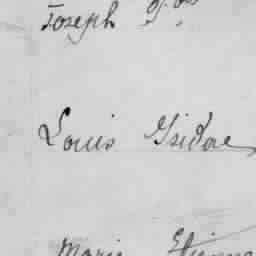 Joseph
Louis Isidore
Marie Etienne